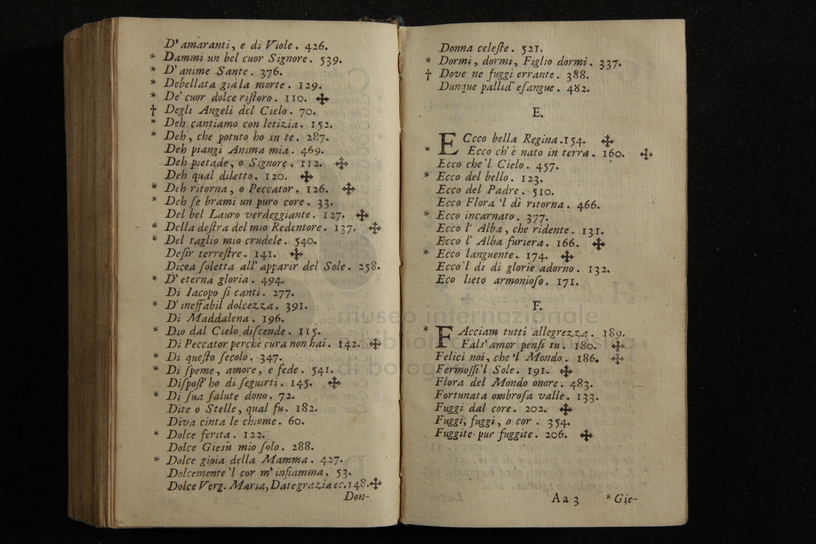 D' amaranti, e di Viole. 426.
* Dammi un bel cuor Signore. 539.
* D' anime Sante. 376.
* Debellata già la morte. 129.
* De' cuor dolce riſtoro. 110. ✠
† Degli Angeli del Cielo. 70.
* Deh cantiamo con letizia. 152.
* Deh, che potuto ho in te. 287.
Deh piangi Anima mia. 469.
Deh pietade, o Signore. 112. ✠
Deh qual diletto. 120. ✠
* Deh ritorna, o Peccator. 126. ✠
* Deh ſe brami un puro core. 33.
Del bel Lauro verdeggiante. 127. ✠
* Della deſtra del mio Redentore. 137. ✠
* Del taglio mio crudele. 540.
Deſir terreſtre. 141. ✠
Dicea ſoletta all' apparir del Sole. 258.
* D' eterna gloria. 494.
Di Iacopo ſi canti. 277.
* D' ineffabil dolcezza. 391.
Di Maddalena. 196.
* Dio dal Cielo diſcende. 115.
Di Peccator perchè cura non hai. 142. ✠
* Di queſto ſecolo. 347.
* Di ſpeme, amore, e fede. 541.
Diſpoſt' ho di ſeguirti. 145. ✠
* Di ſua ſalute dono. 72.
Dite o Stelle, qual fu. 182.
Diva cinta le chiome. 60.
* Dolce ferita. 122.
Dolce Giesù mio ſolo. 288.
* Dolce gioia della Mamma. 427.
Dolcemente 'l cor m' infiamma. 53.
Dolce Verg. Maria, Date grazia ec. 148. ✠
Don-
Donna celeſte. 521.
* Dormi, dormi, Figlio dormi. 337.
† Dove ne fuggi errante. 388.
Dunque pallid' eſangue. 482.
E.
ECcco bella Regina. 154. ✠
* Ecco ch' è nato in terra. 160. ✠
Ecco che 'l Cielo. 457.
* Ecco del bello. 123.
Ecco del Padre. 510.
Ecco Flora 'l dì ritorna. 466.
* Ecco incarnato. 377.
Ecco l' Alba, che ridente. 131.
Ecco l' Alba foriera. 166. ✠
* Ecco languente. 174. ✠
Ecco 'l dì di glorie adorno. 132.
Eco lieto armonioſo. 171.
F.
* FAcciam tutti allegrezza. 189.
Falſ' amor penſi tu. 180. ✠
Felici noi, che 'l Mondo. 186. ✠
Fermoſſi 'l Sole. 191. ✠
Flora del Mondo onore. 483.
Fortunata ombroſa valle. 133.
Fuggi dal core. 202. ✠
Fuggi, fuggi, o cor. 354.
Fuggite pur fuggite. 206. ✠
Aa 3 * Gie-
museo internazionale